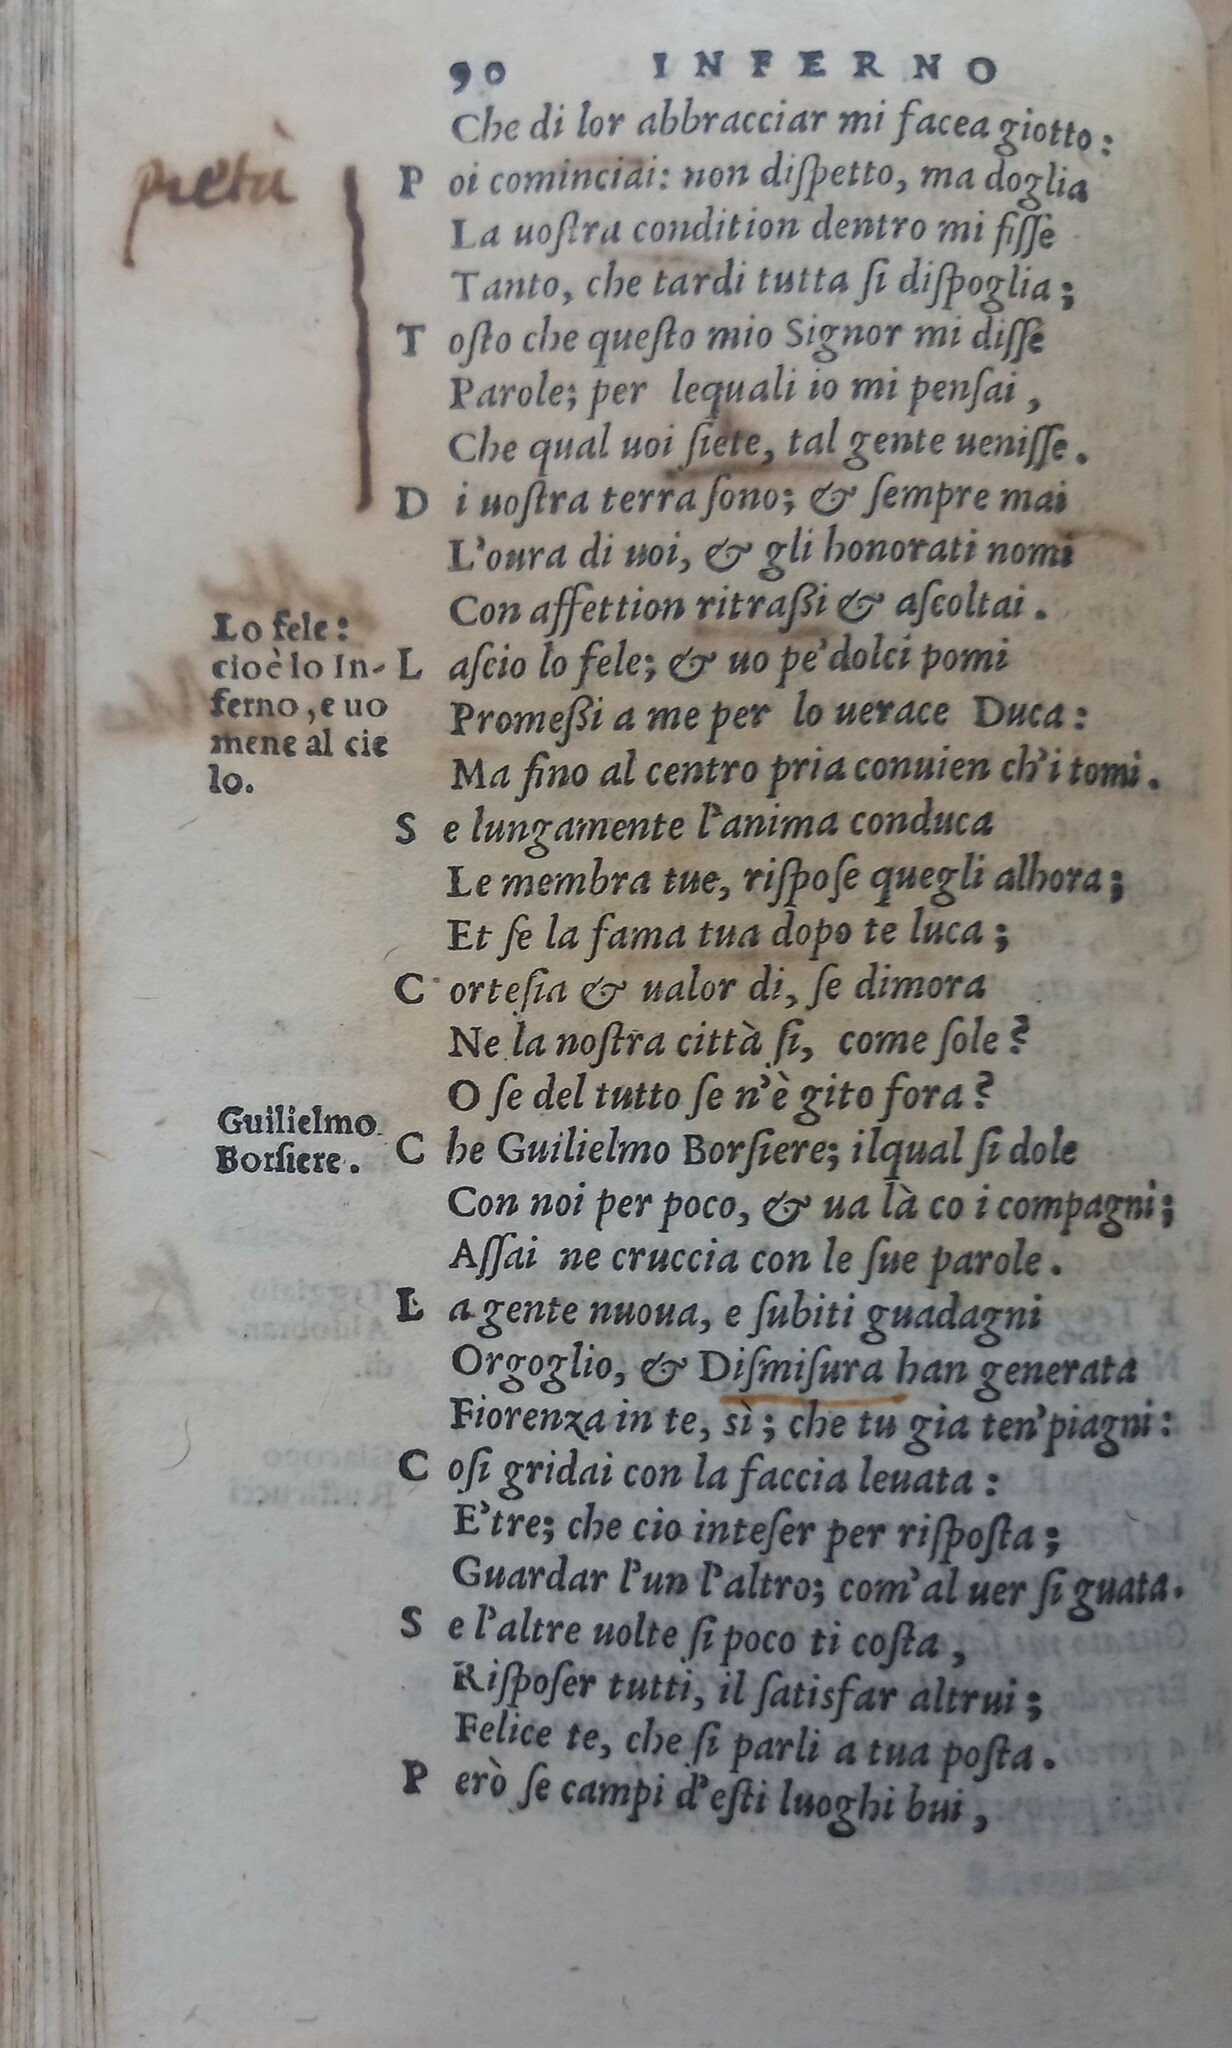 90 INFERNO
Che di lor abbracciar mi facea giotto:
pietà
P oi cominciai: non diſpetto, ma doglia
La uoſtra condition dentro mi fiſſe
Tanto, che tardi tutta ſi diſpoglia;
T oſto che queſto mio Signor mi diſſe
Parole; per lequali io mi penſai,
Che qual uoi ſiete, tal gente ueniſſe.
D i uoſtra terra ſono; & ſempre mai
L'oura di uoi, & gli honorati nomi
Con affettion ritraßi & aſcoltai.
Lo fele:
cioè lo In-
ferno, e uo
mene al cie
lo.
L aſcio lo fele; & uo pe' dolci pomi
Promeßi a me per lo uerace Duca:
Ma fino al centro pria conuien ch'i tomi.
S e lungamente l'anima conduca
Le membra tue, riſpoſe quegli alhora;
Et ſe la fama tua dopo te luca;
C orteſia & ualor di, ſe dimora
Ne la noſtra città ſi, come ſole?
O ſe del tutto ſe n'è gito fora?
Guilielmo
Borſiere.
C he Guilielmo Borſiere; ilqual ſi dole
Con noi per poco, & ua là co i compagni;
Aſſai ne cruccia con le ſue parole.
L a gente nuoua, e ſubiti guadagni
Orgoglio, & Diſmiſura han generata
Fiorenza in te, sì; che tu gia ten' piagni:
C oſi gridai con la faccia leuata:
E' tre; che cio inteſer per riſpoſta;
Guardar l'un l'altro; com' al uer ſi guata.
S e l'altre uolte ſi poco ti coſta,
Riſpoſer tutti, il ſatisfar altrui;
Felice te, che ſi parli a tua poſta.
P erò ſe campi d'eſti luoghi bui,